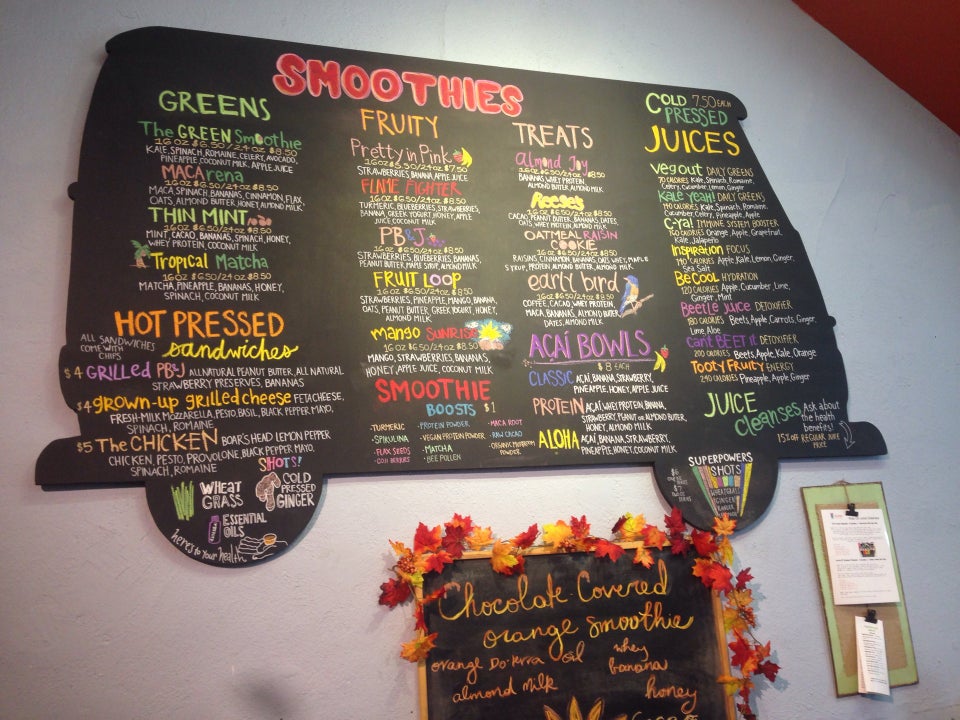 SMOOTHIES
GREENS
The GREEN Smoothie
16 oz $6.50/24 oz $8.50
KALE, SPINACH, ROMAINE, CELERY, AVOCADO,
PINEAPPLE, COCONUT MILK, APPLE JUICE
MACArena
16 oz $6.50/24 oz $8.50
MACA, SPINACH, BANANAS, CINNAMON, FLAX,
OATS, ALMOND BUTTER, HONEY, ALMOND MILK
THIN MINT
16 oz $6.50/24 oz $8.50
MINT, CACAO, BANANAS, SPINACH, HONEY,
WHEY PROTEIN, COCONUT MILK
Tropical Matcha
16 oz $6.50/24 oz $8.50
MATCHA, PINEAPPLE, BANANAS, HONEY,
SPINACH, COCONUT MILK
FRUITY
Pretty in Pink
16 oz $5.50/24 oz $7.50
STRAWBERRIES, BANANA, APPLE JUICE
FLME FIGHTER
16 oz $6.50/24 oz $8.50
TURMERIC, BLUEBERRIES, STRAWBERRIES,
BANANA, GREEK YOGURT, HONEY, APPLE
JUICE, COCONUT MILK
PB&J
16 oz $6.50/24 oz $8.50
STRAWBERRIES, BLUEBERRIES, BANANAS,
PEANUT BUTTER, MAPLE SYRUP, ALMOND MILK
FRUIT LOOP
16 oz $6.50/24 oz $8.50
STRAWBERRIES, PINEAPPLE, MANGO, BANANA,
OATS, PEANUT BUTTER, GREEK YOGURT, HONEY,
ALMOND MILK
mango SUNRISE
16 oz $6.50/24 oz $8.50
MANGO, STRAWBERRIES, BANANAS,
HONEY, APPLE JUICE, COCONUT MILK
SMOOTHIE
BOOSTS $1
• TURMERIC • PROTEIN POWDER • MACA ROOT
• SPIRULINA • VEGAN PROTEIN POWDER • RAW CACAO
• FLAX SEEDS • MATCHA • ORGANIC MUSHROOM
POWDER
• GOJI BERRIES • BEE POLLEN
TREATS
Almond Joy
16 oz $6.50/24 oz $8.50
BANANAS, WHEY PROTEIN,
ALMOND BUTTER, ALMOND MILK
Reese's
16 oz $6.50/24 oz $8.50
CACAO, PEANUT BUTTER, BANANAS, DATES,
OATS, ALMOND MILK
OATMEAL RAISIN
COOKIE
16 oz $6.50/24 oz $8.50
RAISINS, CINNAMON, BANANAS, OATS, WHEY, MAPLE
SYRUP, PROTEIN, ALMOND BUTTER, ALMOND MILK
early bird
16 oz $6.50/24 oz $8.50
COFFEE, CACAO, WHEY PROTEIN,
MACA, BANANAS, ALMOND BUTTER,
DATES, ALMOND MILK
AÇAÍ BOWLS
$8 EACH
CLASSIC AÇAÍ, BANANA, STRAWBERRY,
PINEAPPLE, HONEY, APPLE JUICE
PROTEIN AÇAÍ, WHEY PROTEIN, BANANA,
STRAWBERRY, PEANUT OR ALMOND BUTTER,
HONEY, ALMOND MILK
ALOHA AÇAÍ, BANANA, STRAWBERRY,
PINEAPPLE, HONEY, COCONUT MILK
COLD 7.50 EACH
PRESSED
JUICES
veg out DAILY GREENS
70 CALORIES Kale, Spinach, Romaine,
Celery, Cucumber, Lemon, Ginger
Kale yeah! DAILY GREENS
110 CALORIES Kale, Spinach, Romaine,
Cucumber, Celery, Pineapple, Apple
C-Ya! IMMUNE SYSTEM BOOSTER
160 CALORIES Orange, Apple, Grapefruit,
Kale, Jalapeño
Inspiration FOCUS
140 CALORIES Apple, Kale, Lemon, Ginger,
Sea Salt
Be COOL HYDRATION
120 CALORIES Apple, Cucumber, Lime,
Ginger, Mint
Beetle Juice DETOXIFIER
180 CALORIES Beets, Apple, Carrots, Ginger,
Lime, Aloe
Can't BEET it DETOXIFIER
200 CALORIES Beets, Apple, Kale, Orange
Tooty Fruity ENERGY
240 CALORIES Pineapple, Apple, Ginger
JUICE
Cleanses
Ask about
the health
benefits!
15% off REGULAR JUICE
PRICE
HOT PRESSED
sandwiches
ALL SANDWICHES
COME WITH
CHIPS
$4 GRILLED PB&J ALL NATURAL PEANUT BUTTER, ALL NATURAL
STRAWBERRY PRESERVES, BANANAS
$4 grown-up grilled cheese FETA CHEESE,
FRESH-MILK MOZZARELLA, PESTO, BASIL, BLACK PEPPER MAYO,
SPINACH, ROMAINE
$5 The CHICKEN BOARS HEAD LEMON PEPPER
CHICKEN, PESTO, PROVOLONE, BLACK PEPPER MAYO,
SPINACH, ROMAINE
SHOTS!
WHEAT
GRASS
COLD
PRESSED
GINGER
ESSENTIAL
OILS
here's to your health
SUPERPOWERS
SHOTS
WHEATGRASS
GINGER
Chocolate Covered
orange smoothie
orange Doterra oil whey
banana
almond milk honey